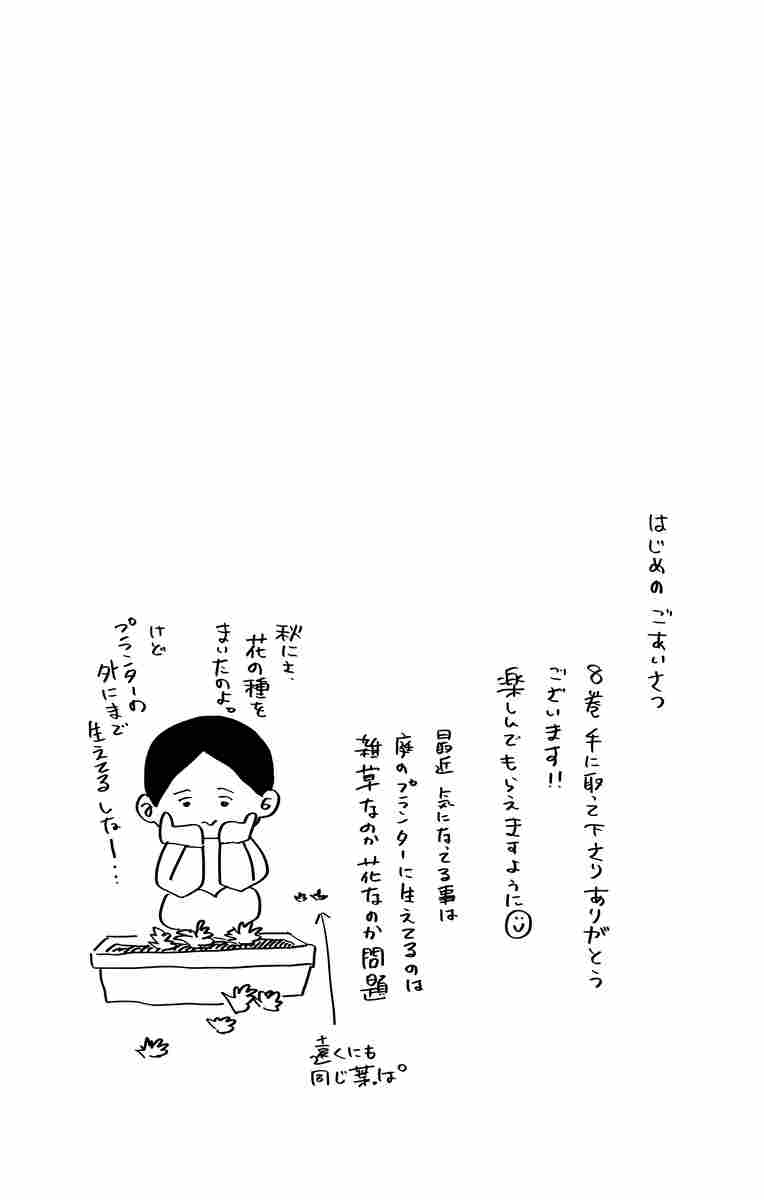 はじめの ごあいさつ
8巻 手に取って下さりありがとう
ございます!!
楽しんでもらえますように
最近 気になってる事は
庭のプランターに生えてるのは
雑草なのか 花なのか 問題
秋にさ、
花の種を
まいたのよ。
けど
プランターの
外にまで
生えてるしなー…
遠くにも
同じ葉っぱ。